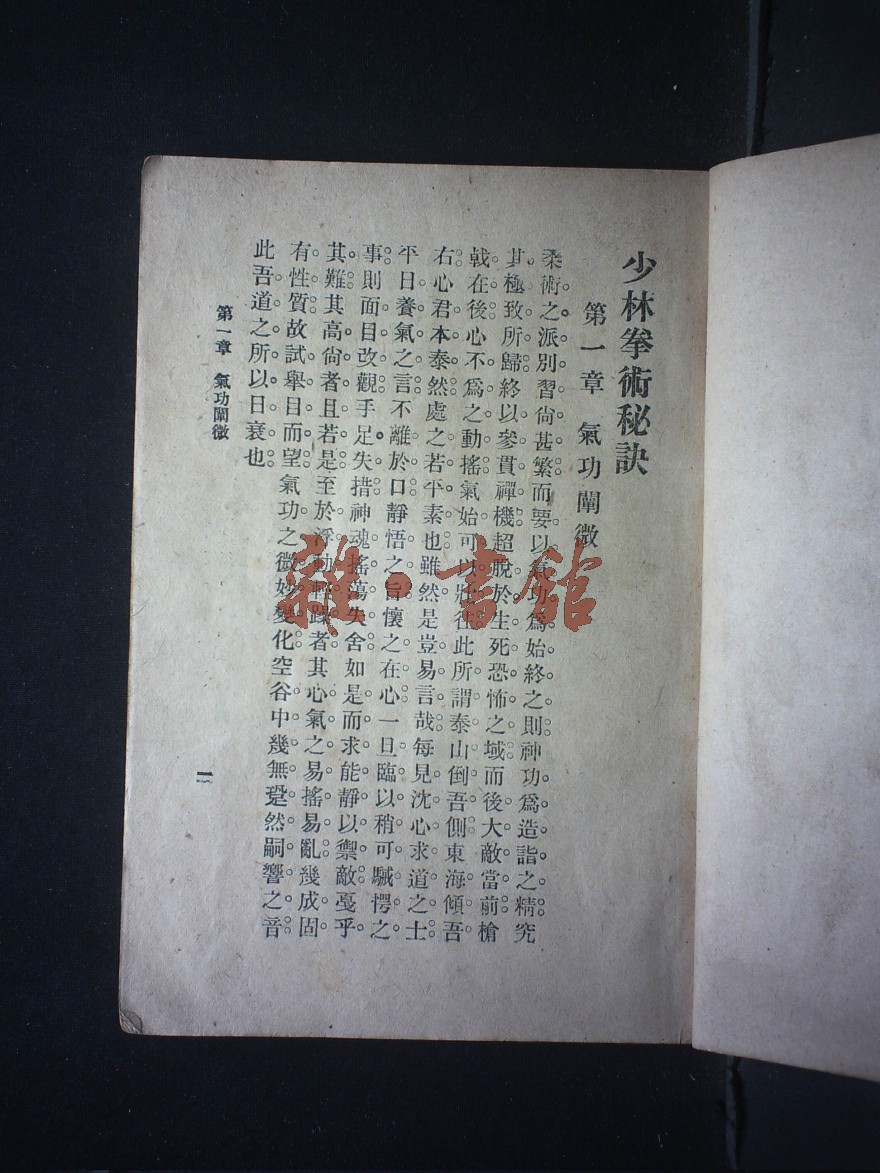 少林拳術秘訣
第一章 氣功闡微
柔術之派別習尚甚繁而要以氣功為始終之則神功為造詣之精究
其極致所歸終以參貫禪機超脫於生死恐怖之域而後大敵當前槍
戟在後心不為之動搖氣始可以壯往此所謂泰山倒吾側東海傾吾
右心君本泰然處之若平素也雖然是豈易言哉每見沈心求道之士
平日養氣之言不離於口靜悟之旨懷之在心一旦臨以稍可駴愕之
事則面目改觀手足失措神魂搖蕩失舍如是而求能靜以禦敵戞乎
其難其高尚者且若是至於浮動輕躁者其心氣之易搖易亂幾成固
有性質故試舉目而望氣功之微妙變化空谷中幾無跫然嗣響之音
此吾道之所以日衰也
第一章 氣功闡微
一
雜·書館